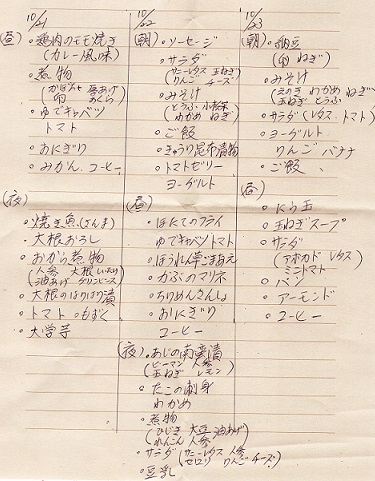 10/21
(昼)
・鶏肉のモモ焼き
(カレー風味)
・煮物
(かぼちゃ 厚あげ
卵 おくら)
・ゆでキャベツ
トマト
・おにぎり
・みかん、コーヒー
(夜)
・焼き魚(さんま)
・大根おろし
・おから煮物
(人参 大根 しいたけ
油あげ グリンピース)
・大根のはりはり漬
・トマト もずく
・大学芋
10/22
(朝)
・ソーセージ
・サラダ
(サニーレタス 玉ねぎ
りんご チーズ)
・みそ汁
(とうふ 小松菜
わかめ ねぎ)
・ご飯
・きゅうり昆布漬物
・トマトゼリー
ヨーグルト
(昼)
・ほたてのフライ
ゆでキャベツ トマト
・ほうれん草ごまあえ
・かぶのマリネ
・ちりめんさんしょ
・おにぎり
コーヒー
(夜)
・あじの南蛮漬
(ピーマン 人参
玉ねぎ レモン)
・たこの刺身
わかめ
・煮物
(ひじき 大豆 油あげ
れんこん 人参)
・サラダ(サニーレタス 人参
セロリ りんご チーズ)
・豆乳
10/23
(朝)
・納豆
(卵 ねぎ)
・みそ汁
(えのき わかめ ねぎ
玉ねぎ とうふ)
・サラダ(レタス トマト)
・ヨーグルト
りんご バナナ
・ご飯
(昼)
・にら玉
・玉ねぎスープ
・サラダ
(アボカド レタス
ミニトマト)
・パン
・アーモンド
・コーヒー